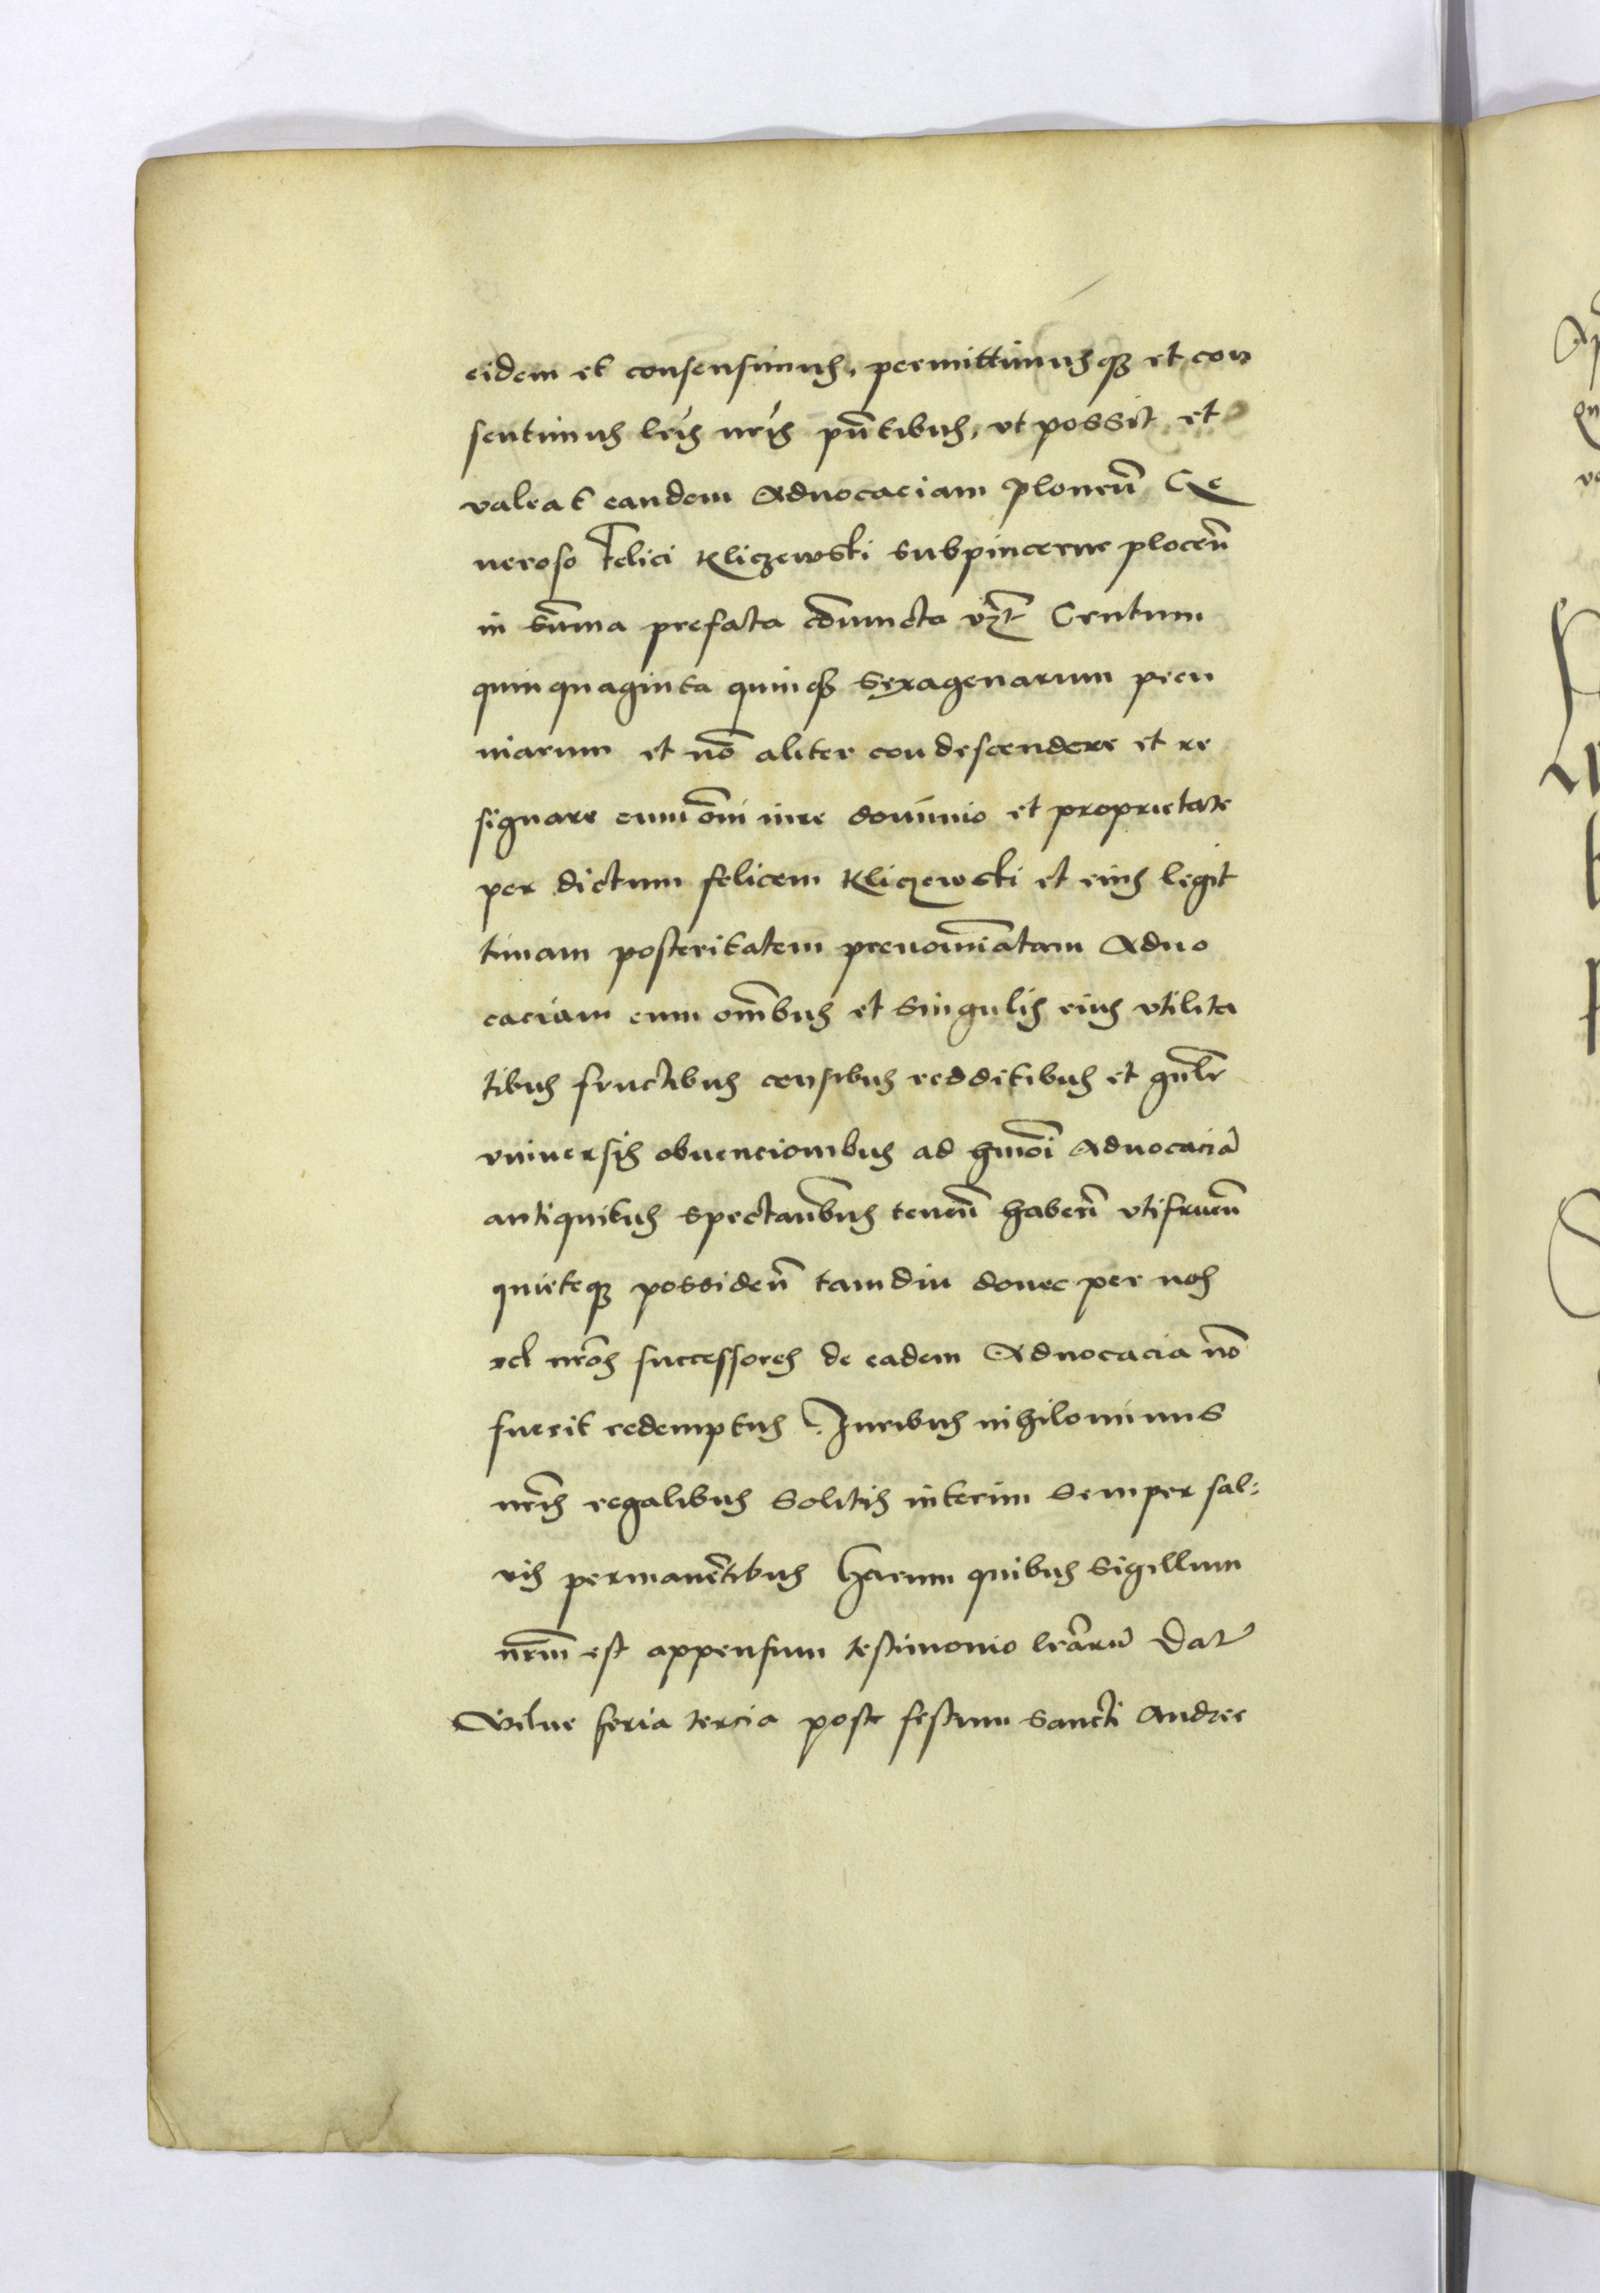 eidem et consensimus, permittimusq3 et con
sentimus lr̃is nr̃is pn̄tibus, vt possit et
valeat eandem Aduocaciam plonen̄ Ge
neroso Felici Kliczewski subpincerne plocen̄
in sūma prefata cōiuncta vz̄t Centum
quinquaginta quinq3 sexagenarum pecu
niarum et nō aliter condescendere et re
signare cum om̄i iure dominio et proprietate
per dictum felicem Kliczewski et eius legit
timam posteritatem prenomīatam Aduo
caciam cum om̄ibus et singulis eius vtilita
tibus fructibus censibus redditibus et gn̄lr̄
vniuersis obuencionibus ad hmōi Aduocaciā
antiquitus spectan̄bus tenen̄ haben̄ vtifruen̄
quieteq3 possiden̄ tamdiu donec per nos
vel nr̄os successores de eadem Aduocacia nō
fuerit redemptus. Juribus nihilominus
nr̄is regalibus solitis interim semper sal:
vis permanētibus Harum quibus sigillum
nr̄m est appensum testimonio lr̄arū Dat̄
Vilne feria tercia post festum sancti Andree